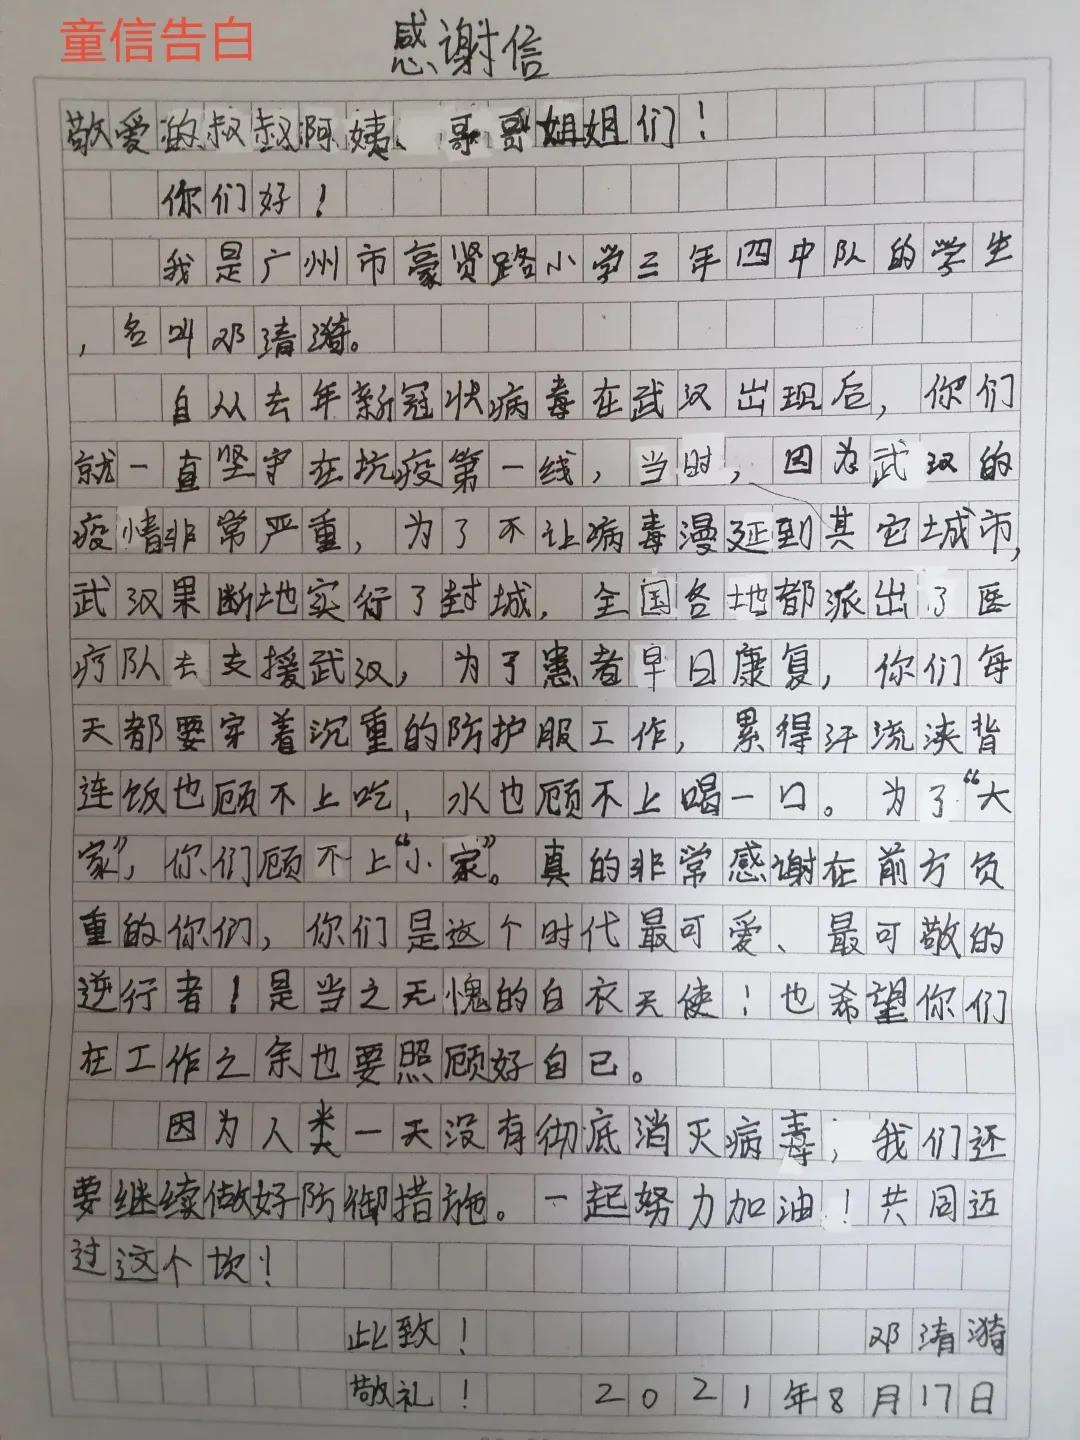 童信告白
感谢信
敬爱的叔叔阿姨、哥哥姐姐们！
你们好！
我是广州市豪贤路小学三年四中队的学生
，名叫邓清漪。
自从去年新冠状病毒在武汉出现后，你们
就一直坚守在抗疫第一线，当时，因为武汉的
疫情非常严重，为了不让病毒漫延到其它城市，
武汉果断地实行了封城，全国各地都派出了医
疗队去支援武汉，为了患者早日康复，你们每
天都要穿着沉重的防护服工作，累得汗流浃背
连饭也顾不上吃，水也顾不上喝一口。为了“大
家”，你们顾不上“小家”。真的非常感谢在前方负
重的你们，你们是这个时代最可爱、最可敬的
逆行者！是当之无愧的白衣天使！也希望你们
在工作之余也要照顾好自己。
因为人类一天没有彻底消灭病毒，我们还
要继续做好防御措施。一起努力加油！共同迈
过这个坎！
此致！ 邓清漪
敬礼！ 2021年8月17日